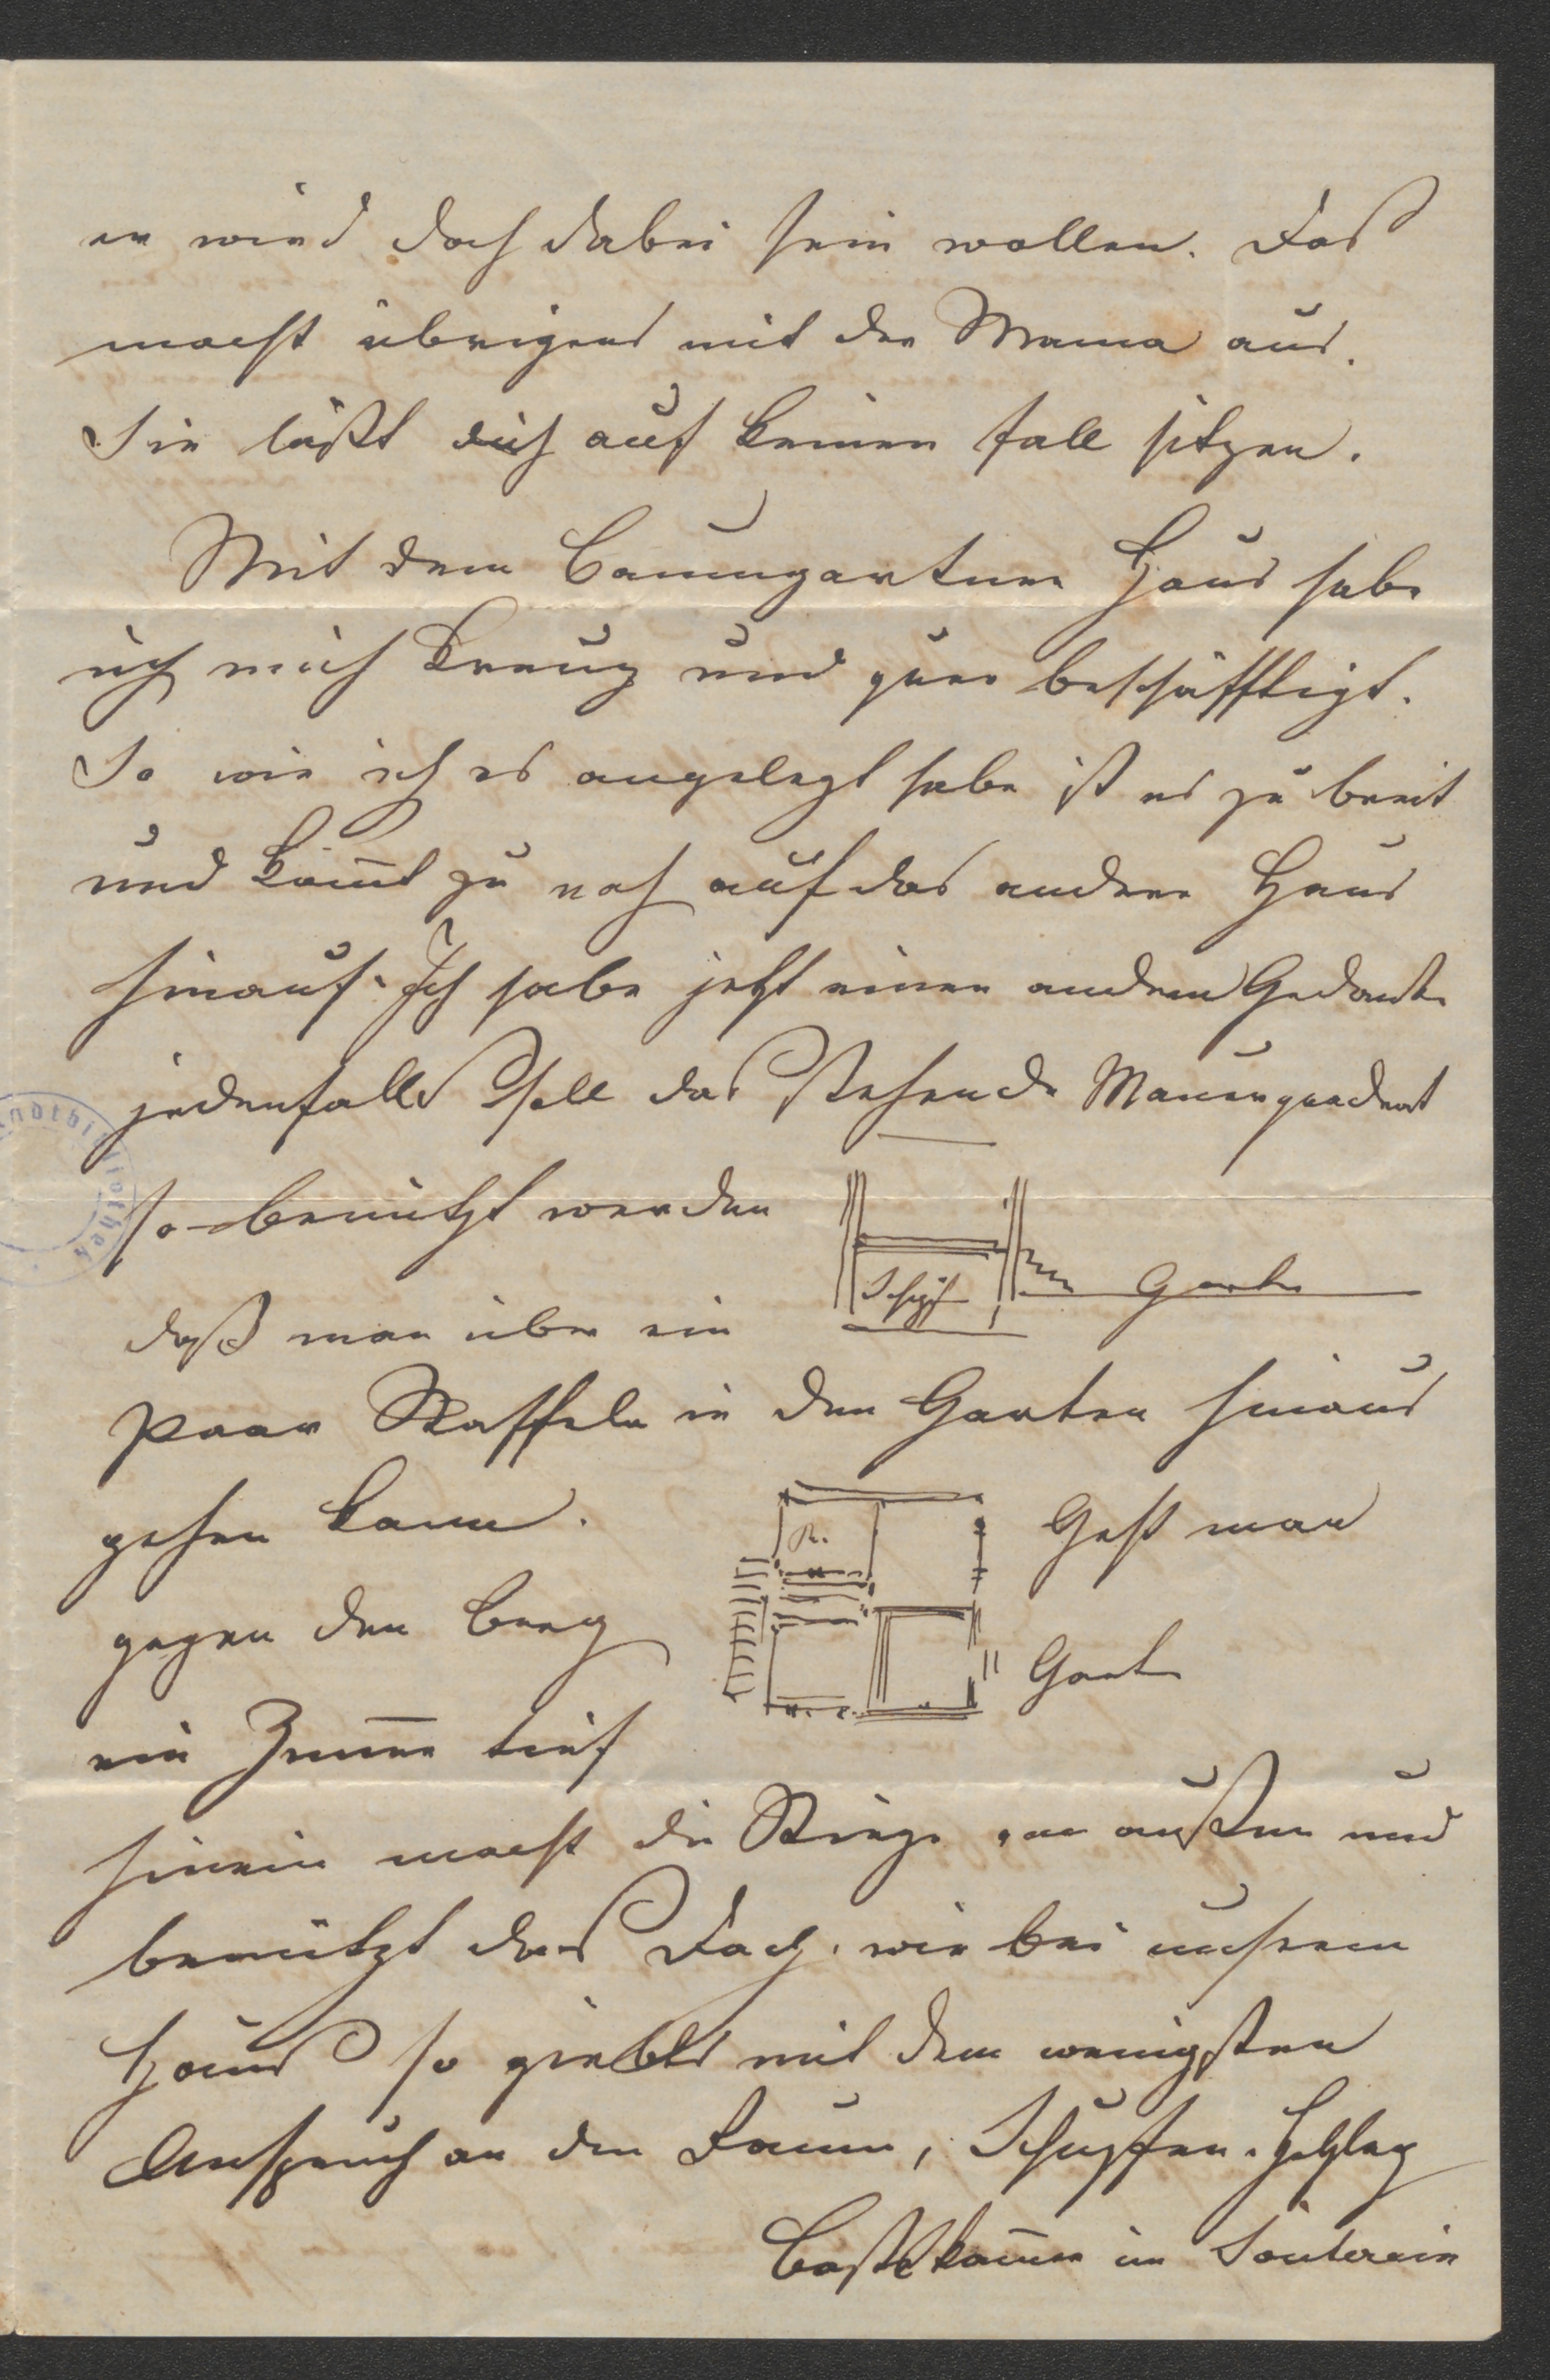 er wird doch dabei sein wollen. Das
macht übrigens mit der Mama aus.
Sie läßt dich auf keinen Fall sitzen.
Mit dem Baumgartner Haus habe
ich mich kreuz und quer beschäfftigt.
So wie ich es angelegt habe ist es zu breit
und kom̄t zu nah auf das andere Haus
hinauf. Ich habe jetzt einen andern Gedanke
jedenfalls soll das stehende Mauerquadrat
so benützt werden
Schupf Garten
daß man über ein
paar Staffeln in den Garten hinaus
gehen kann. Geht man
R.
gegen den Berg
Garten
ein Zim̄er tief
hinein macht die Stiege von außen und
benützt das Dach. wie bei unserem
Haus so giebts mit dem wenigsten
Anspruch an den Raum, Schupfen. Holzleg
kam̄er im Souterain